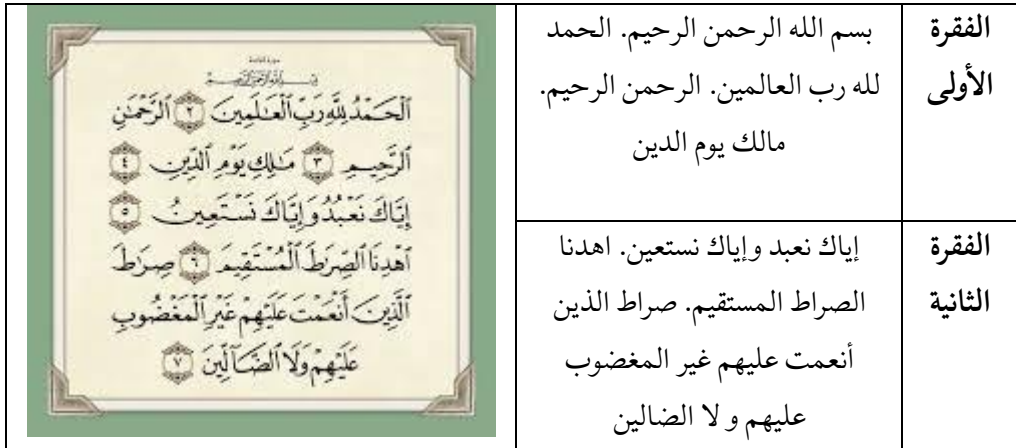 الفقرة
الأولى
بسم الله الرحمن الرحيم. الحمد
لله رب العالمين. الرحمن الرحيم.
مالك يوم الدين
الفقرة
الثانية
إياك نعبد وإياك نستعين. اهدنا
الصراط المستقيم. صراط الذين
أنعمت عليهم غير المغضوب
عليهم و لا الضالين
بِسْمِ ٱللَّهِ ٱلرَّحْمَٰنِ ٱلرَّحِيمِ
ٱلْحَمْدُ لِلَّهِ رَبِّ ٱلْعَٰلَمِينَ ٢ ٱلرَّحْمَٰنِ
ٱلرَّحِيمِ ٣ مَٰلِكِ يَوْمِ ٱلدِّينِ ٤
إِيَّاكَ نَعْبُدُ وَإِيَّاكَ نَسْتَعِينُ ٥
ٱهْدِنَا ٱلصِّرَٰطَ ٱلْمُسْتَقِيمَ ٦ صِرَٰطَ
ٱلَّذِينَ أَنْعَمْتَ عَلَيْهِمْ غَيْرِ ٱلْمَغْضُوبِ
عَلَيْهِمْ وَلَا ٱلضَّآلِّينَ ٧